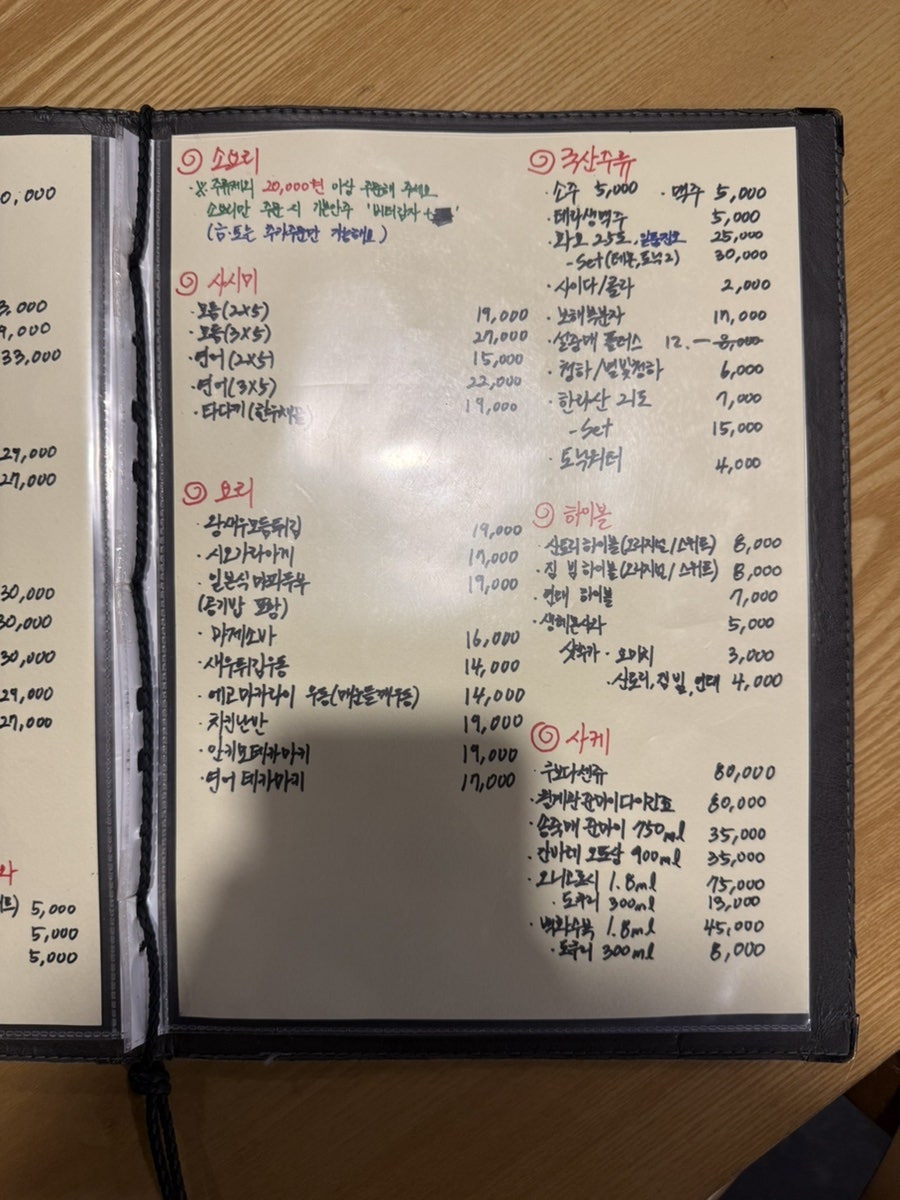 0,000
3,000
9,000
33,000
29,000
27,000
30,000
30,000
30,000
29,000
27,000
와
5,000
5,000
5,000
소요리
※ 주류제외 20,000원 이상 주문해 주세요
소요리만 주문 시 기본안주 '버터감자
(술 또는 추가주문만 가능해요)
사시미
· 모듬(2×5) 19,000
· 모듬(3×5) 27,000
· 연어(2×5) 15,000
· 연어(3×5) 22,000
· 타다끼(한우채끝) 19,000
요리
· 왕새우모듬튀김 19,000
· 시오가라아게 17,000
· 일본식 마파두부 19,000
(공기밥 포함)
· 마제소바 16,000
· 새우튀김우동 14,000
· 에코마카라이 우동(매운들깨우동) 14,000
· 치킨난반 19,000
· 안키모테카마키 19,000
· 연어 테카마키 17,000
국산주류
· 소주 5,000 · 맥주 5,000
· 테라생맥주 5,000
· 화요 25도, 일품진로 25,000
-Set(레몬,토닉2) 30,000
· 사이다/콜라 2,000
· 보해복분자 17,000
· 설중매 플러스 12.- 8,000
· 청하/별빛청하 6,000
· 한라산 21도 7,000
-Set 15,000
· 토닉워터 4,000
하이볼
· 산토리하이볼(오리지널/스위트) 8,000
· 짐 빔 하이볼(오리지널/스위트) 8,000
· 연태 하이볼 7,000
· 생레몬사와 5,000
샷추가 · 오미치 3,000
· 산토리, 짐 빔, 연태 4,000
사케
· 쿠보다센쥬 80,000
· 월계관 준마이다이긴죠 80,000
· 송죽매 준마이 750ml 35,000
· 간바레 오또상 900ml 35,000
· 오니고로시 1.8ml 75,000
· 도쿠리 300ml 13,000
· 백화수복 1.8ml 45,000
· 도쿠리 300ml 8,000